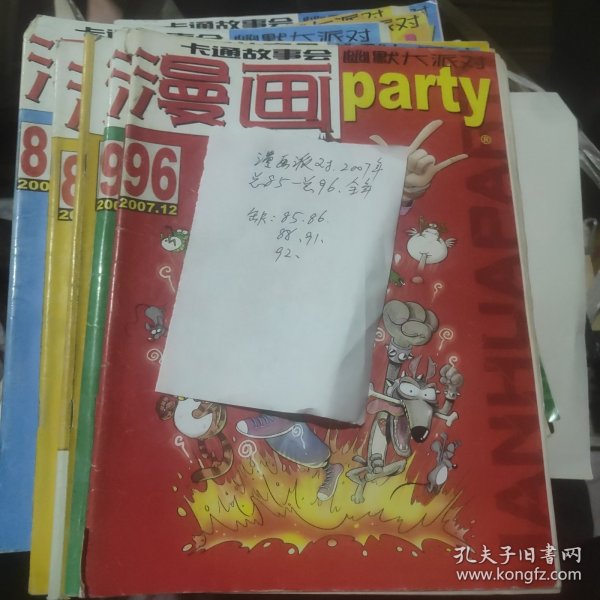 卡通故事会 幽默大派对
漫画party
®
96
2007.12
漫画派对.2007年
总85—总96.全年
缺:85.86.
88、91、
92、
MANHUAPARTY
孔夫子旧书网
www.kongfz.com